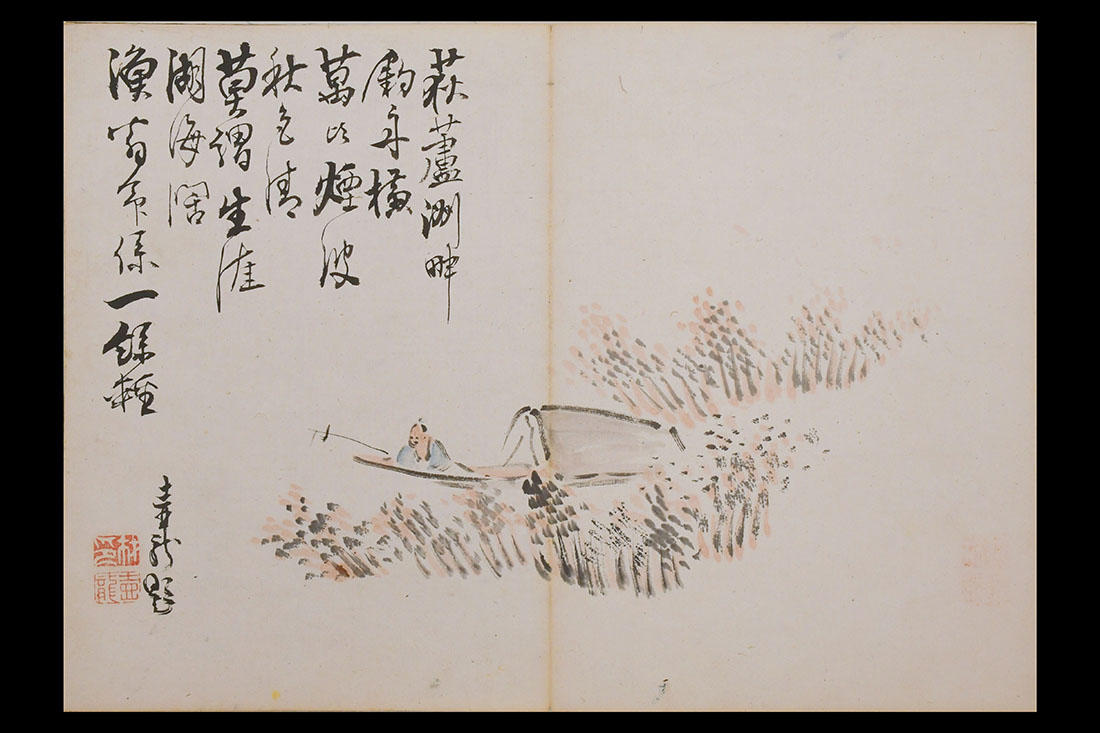 荻蘆洲畔
釣舟橫
萬頃煙波
秋色清
莫謂生涯
湖海闊
漁翁命係一輕
龍題